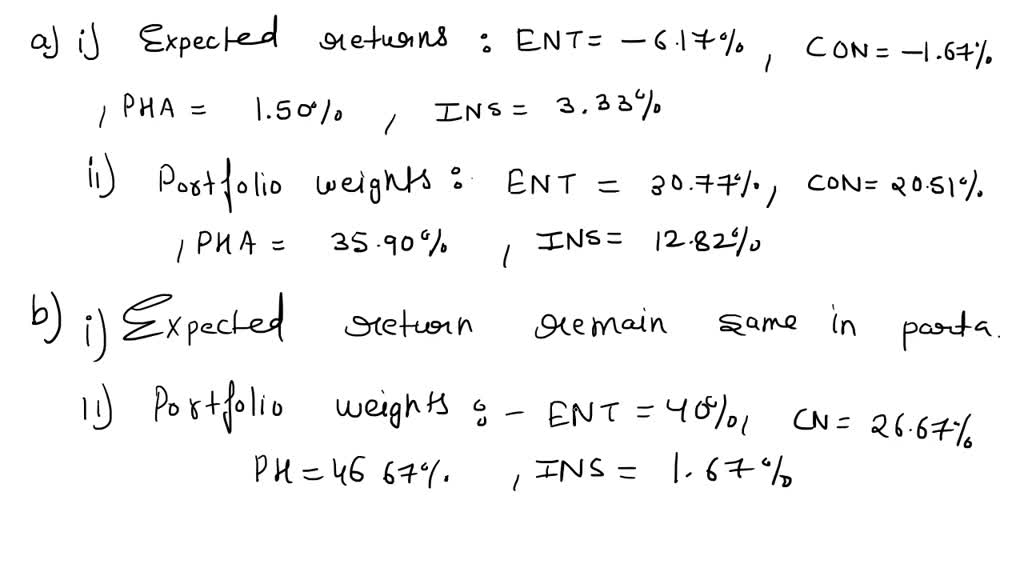 a) i) Expected returns : ENT = -6.17% , CON = -1.67%
, PHA = 1.50% , INS = 3.33%
ii) Portfolio weights : ENT = 30.77%, CON = 20.51%
, PHA = 35.90% , INS = 12.82%
b) i) Expected return remain same in parta.
ii) Portfolio weights : - ENT = 40%, CN = 26.67%
PH = 46 67%. , INS = 1.67%